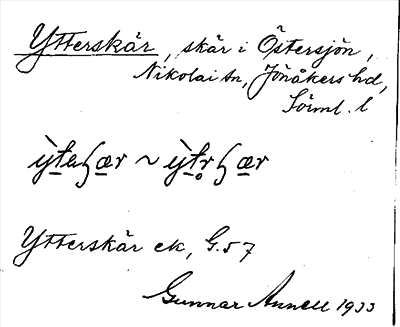 Ytterskär, skär i Östersjön,
Nikolai sn, Jönåkers hd,
Sörml. l
ỳt̲aʂæ̲r ~ ỳt̲r̥ʂæ̲r
Ytterskär ek, G.57
Gunnar Annell 1933